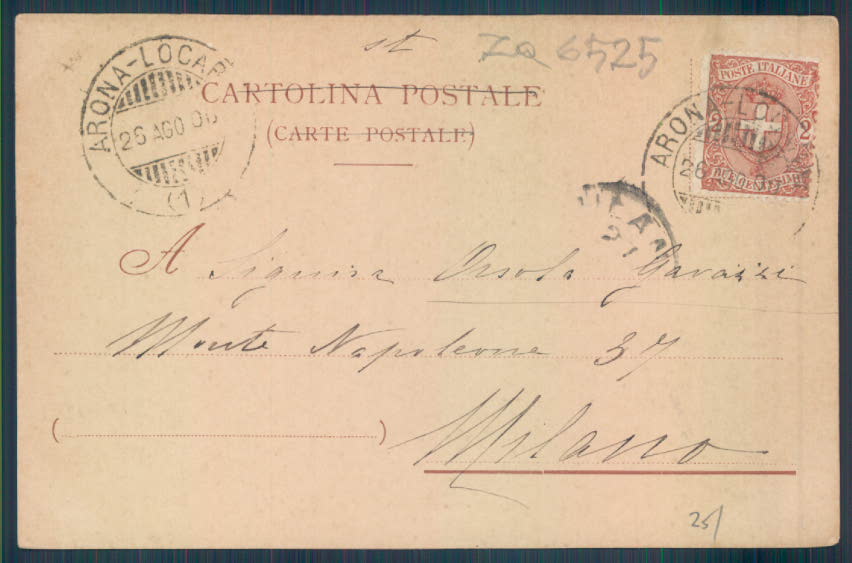 st
ZQ 6525
ARONA-LOCAR
26 AGO 00
(1)
CARTOLINA POSTALE
(CARTE POSTALE)
POSTE ITALIANE
2 2
DUE CENTESIMI
ARON LO
26
MILAN
27
A Signora Orsola Gavazzi
Monte Napoleone 37
( )
Milano
25/